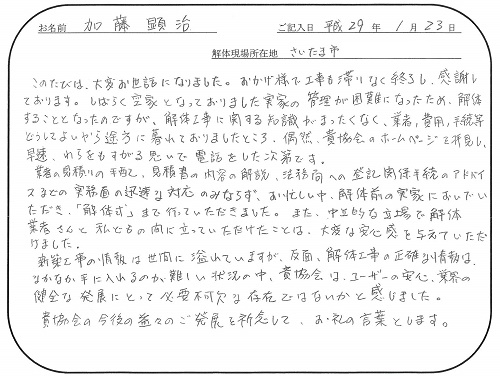 お名前 加藤 顕治 ご記入日 平成29年1月23日
解体現場所在地 さいたま市
このたびは、大変お世話になりました。おかげ様で工事も滞りなく終了し、感謝し
ております。しばらく空家となっておりました実家の管理が困難になったため、解体
することとなったのですが、解体工事に関する知識がまったくなく、業者、費用、手続等
どうしてよいやら途方に暮れておりましたところ、偶然、貴協会のホームページを拝見し、
早速、わらをもすがる思いで電話をした次第です。
業者の見積りの手配、見積書の内容の解説、法務局への登記関係手続のアドバイ
スなどの実務面の迅速な対応のみならず、お忙しい中、解体前の実家においでいた
だき、「解体式」まで行っていただきました。また、中立的な立場で解体
業者さんと私どもの間に立っていただけたことは、大変な安心感を与えていただ
けました。
新築工事の情報は世間に溢れていますが、反面、解体工事の正確な情報は、
なかなか手に入れるのが難しい状況の中、貴協会は、ユーザーの安心、業界の
健全な発展にとって必要不可欠な存在ではないかと感じました。
貴協会の今後の益々のご発展を祈念して、お礼の言葉とします。